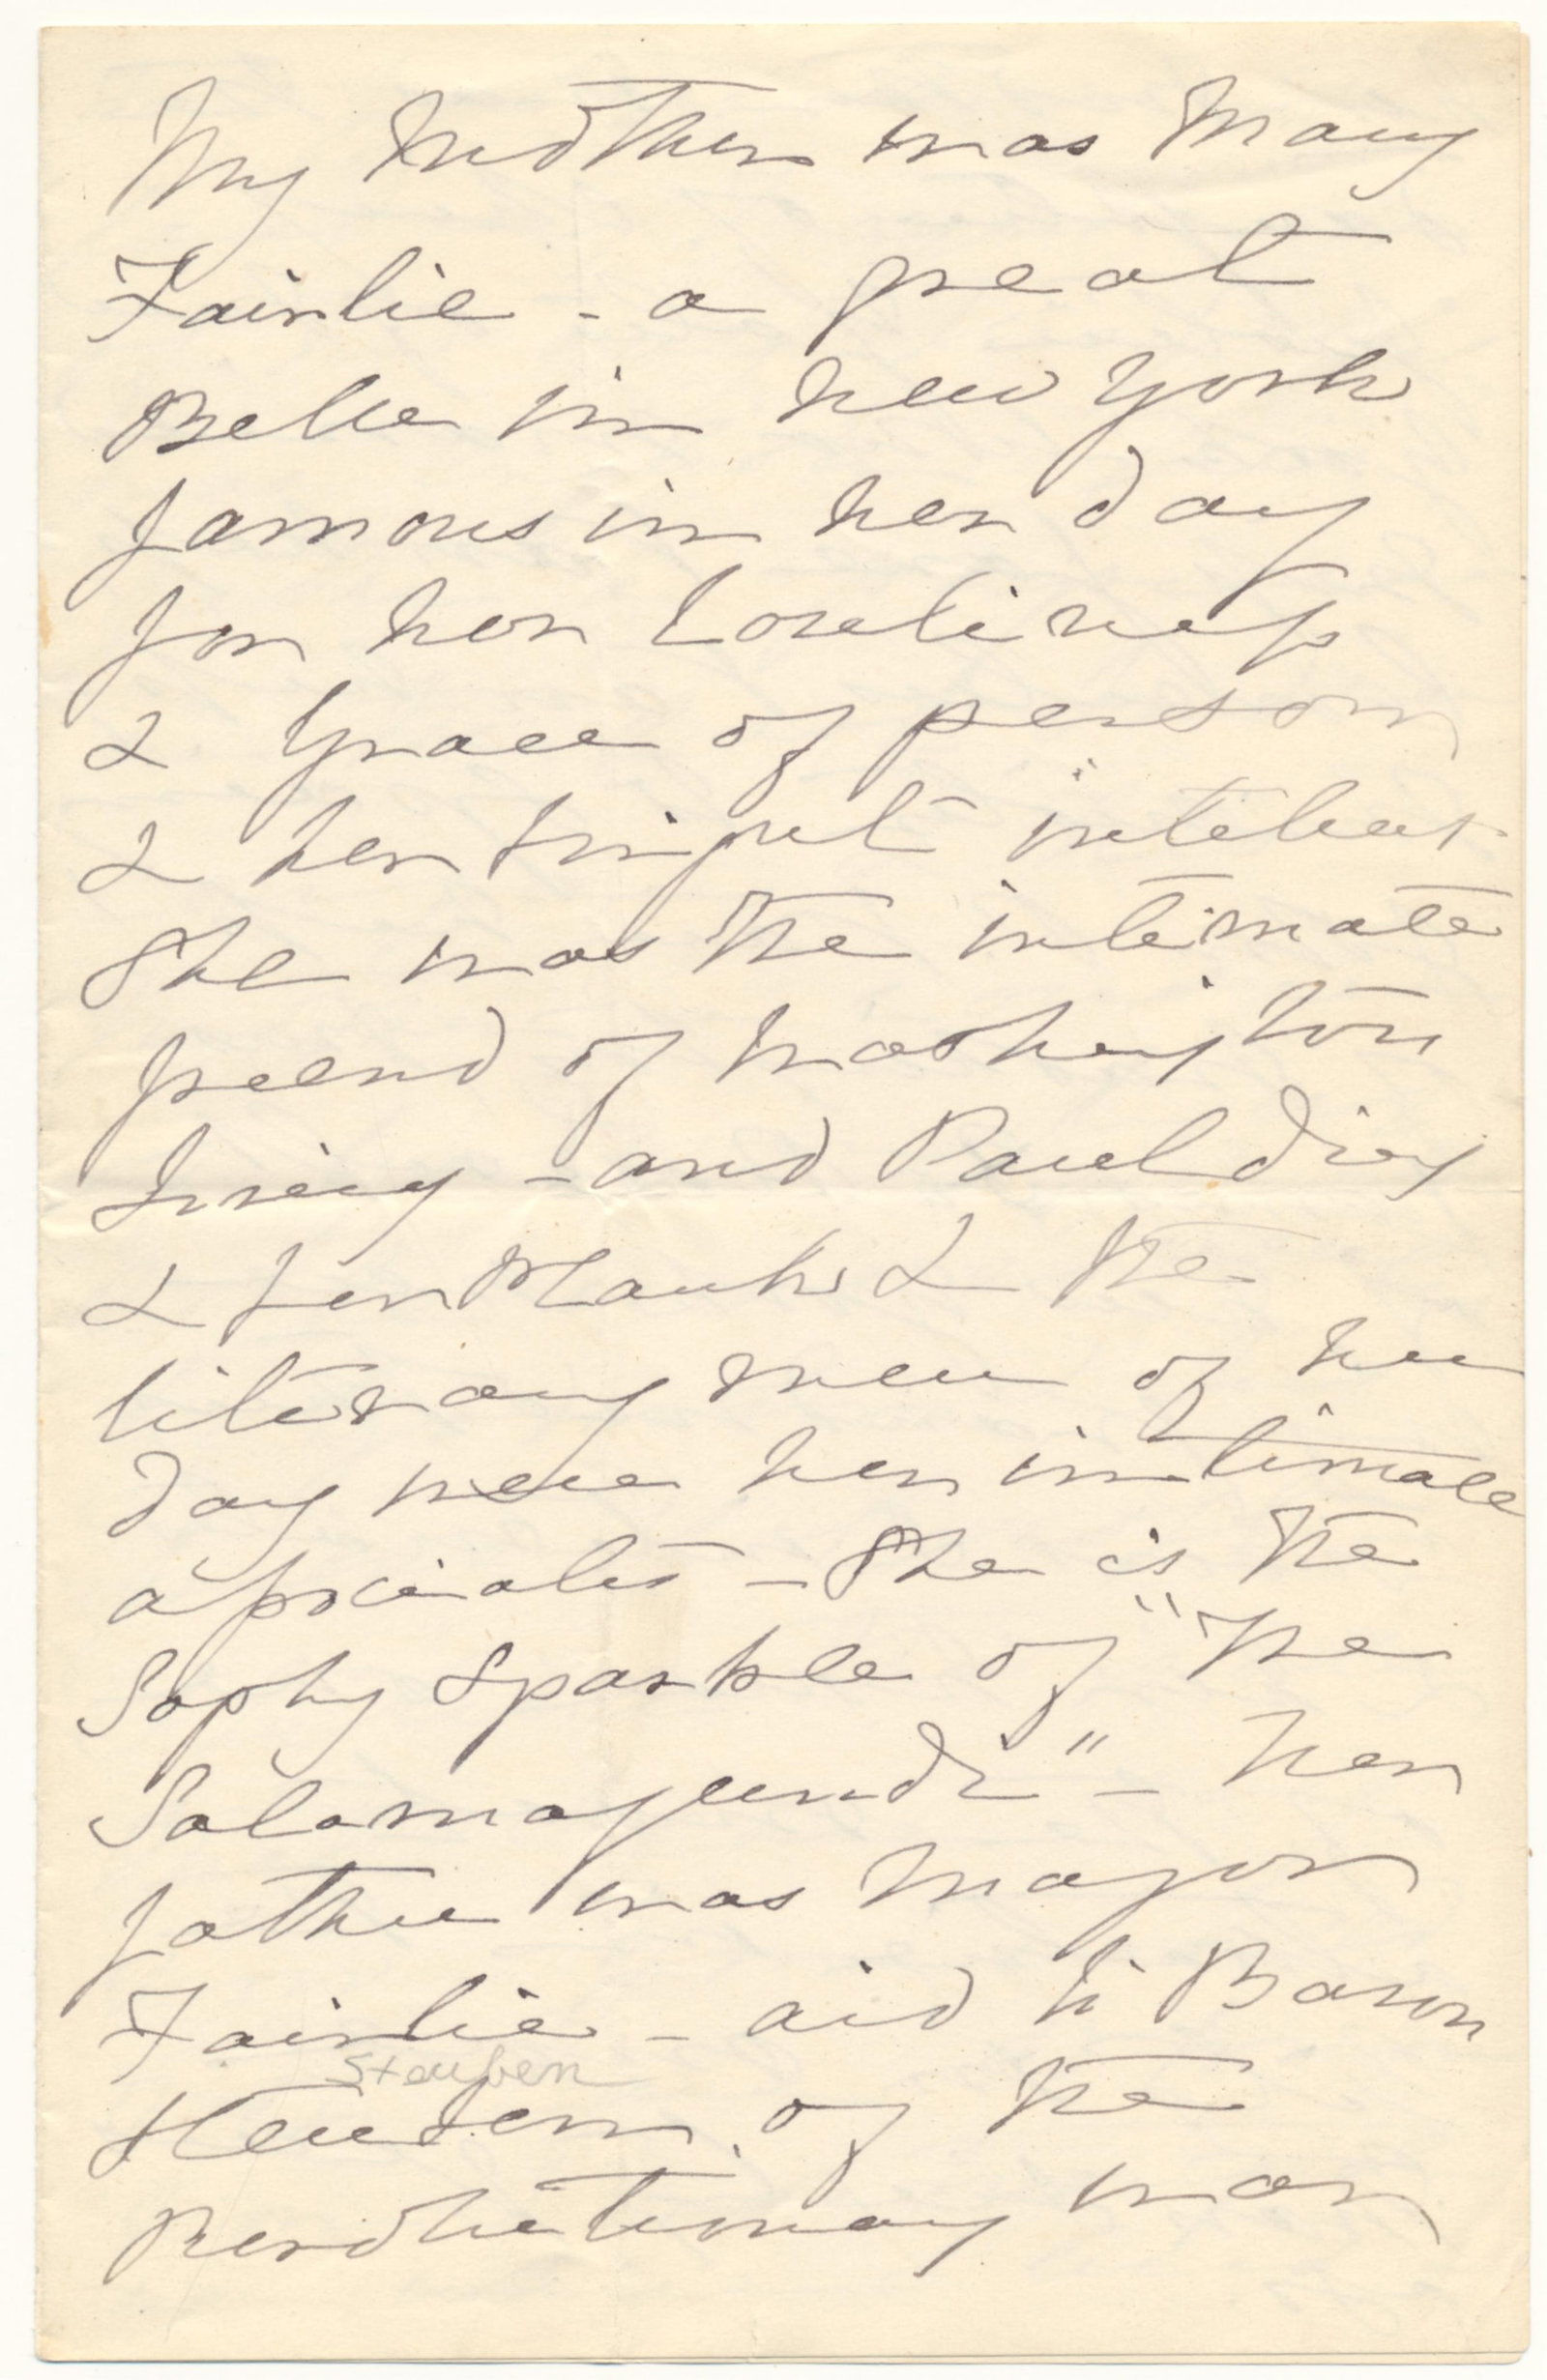 My Mother was Mary
Fairlie - a great
Belle in New York
famous in her day
for her Loveliness
& Grace of person
& her bright intellect
She was the intimate
freend of Washington
Irving - and Paulding
& Ver Plank & the
literary men of her
day were her intimate
associates - She is the
Sophy Sparkle of "The
Salamagundi" - her
father was Major
Fairlie - aid to Baron
Steuben
Steuben, of the
Revolutionary war